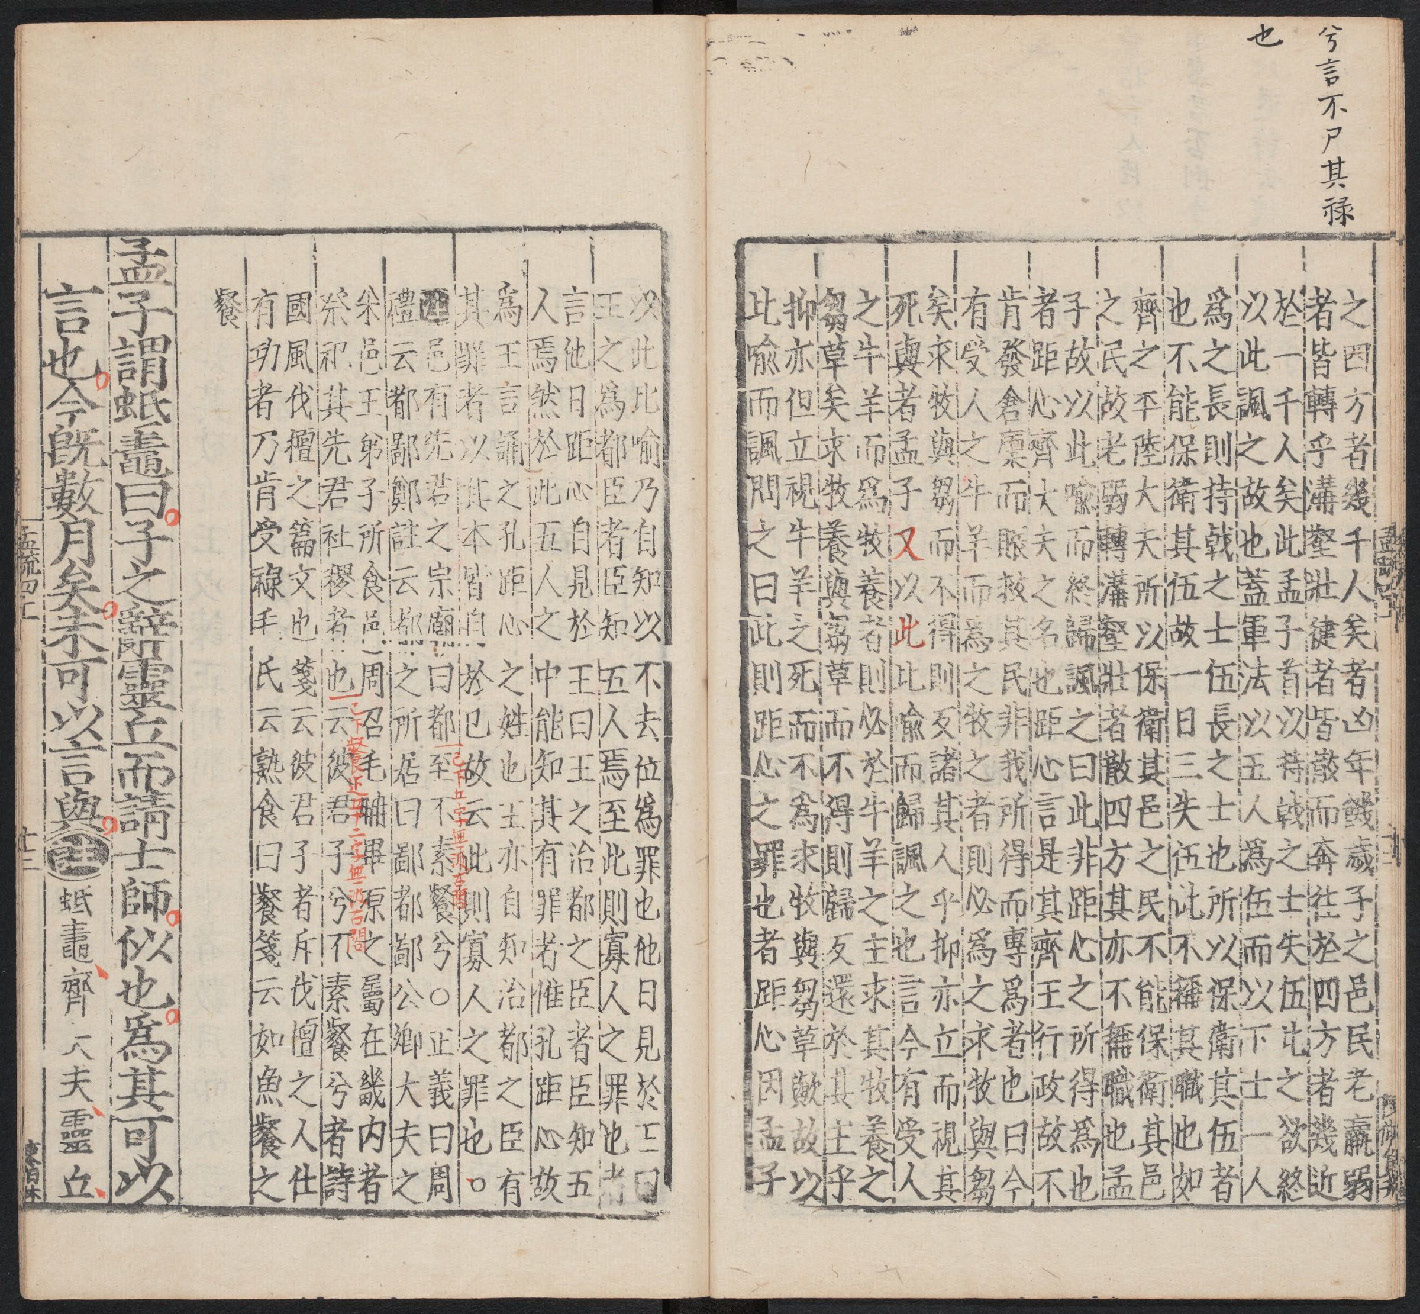 兮言不尸其祿
也
之四方者幾千人矣者凶年饑歲子之邑民老羸弱
者皆轉乎溝壑壯健者皆散而奔往於四方者幾近
於一千人矣此孟子首以持戟之士失伍此之欲終
以此諷之故也蓋軍法以五人為伍而以下士一人
爲之長則持戟之士伍長之士也所以保衛其伍者
也不能保衛其伍故一日三失伍此不稱其職也如
齊之平陸大夫所以保衛其邑之民不能保衛其邑
之民故老弱轉溝壑壯者散四方其亦不稱職也孟
子故以此喻而終歸諷之曰此非距心之所得爲也
者距心齊大夫之名也距心言是其齊王行政故不
肯發倉廩而賑救其民非我所得而專爲者也曰今
有受人之牛羊而爲之牧之者則必爲之求牧與芻
矣求牧與芻而不得則反諸其人乎抑亦立而視其
死與者孟子又以此比喻而歸諷之也言今有受人
之牛羊而爲牧養者則必於牛羊之主求其牧養之
芻草矣求牧養與芻草而不得則歸反還於其主乎
抑亦但立視牛羊之死而不爲求牧與芻草歟故以
此喻而諷問之曰此則距心之罪也者距心因孟子
以此比喻乃自知以不去位爲罪也他日見於王曰
王之爲都臣者臣知五人焉至此則寡人之罪也者
言他日距心自見於王曰王之治都之臣者臣知五
人焉然於此五人之中能知其有罪者惟孔距心故
爲王言誦之孔距心之姓也王亦自知治都之臣有
其罪者以其本皆自於已故云此則寡人之罪也○
注邑有先君之宗廟曰都至不素餐兮○正義曰周
禮云都鄙鄭註云都之所居曰鄙都鄙公卿大夫之
采邑王弟子所食邑周召毛聃畢原之屬在畿內者
祭祀其先君社稷者也云彼君子兮不素餐兮者詩
國風伐檀之篇文也箋云彼君子者斥伐檀之人仕
有功者乃肯受祿毛氏云熟食曰餐箋云如魚餐之
餐
孟子謂蚳鼃曰子之辭靈丘而請士師似也爲其可以
言也今既數月矣未可以言與注蚳鼃齊大夫靈丘